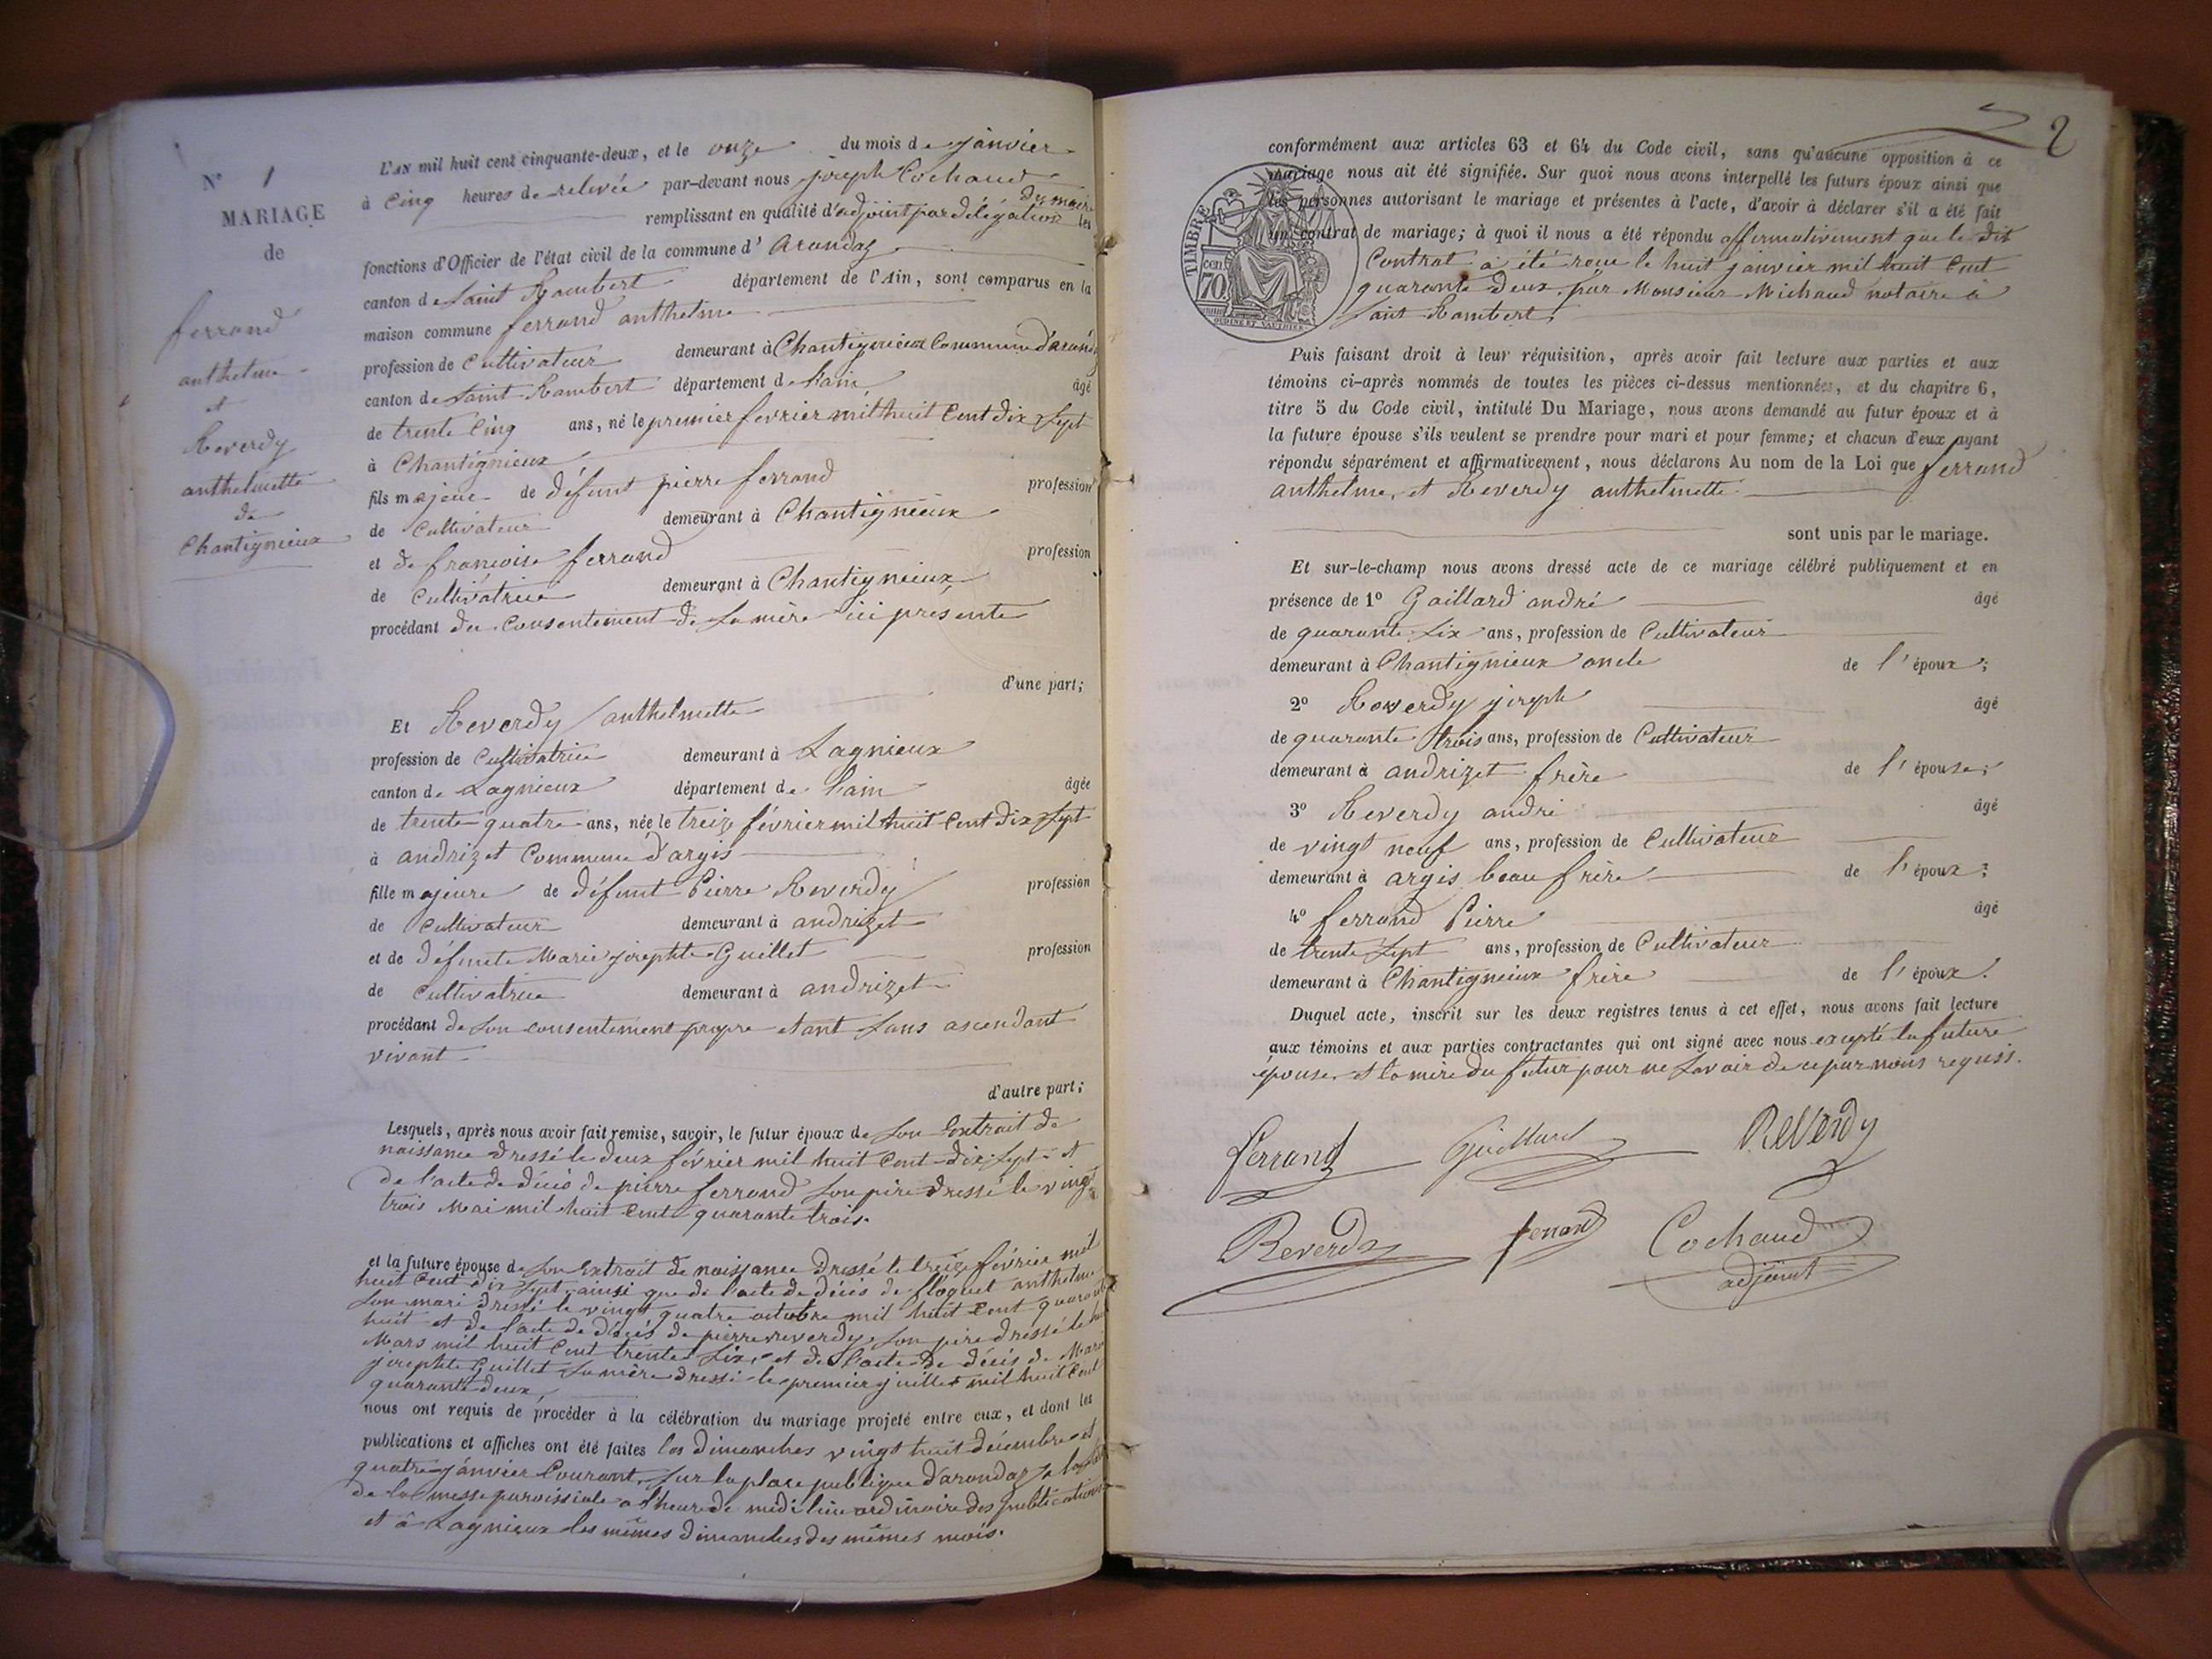 N° 1
MARIAGE
de
ferrand
anthelme
et
Reverdy
anthelmette
de
Chantignieux
L'AN mil huit cent cinquante-deux, et le onze du mois de janvier
à cinq heures de relevée par-devant nous joseph Cochaud
remplissant en qualité d'adjoint par délégation du maire les
fonctions d'Officier de l'état civil de la commune d' arandaz
canton de Saint Rambert département de l'Ain, sont comparus en la
maison commune ferrand anthelme
profession de Cultivateur demeurant à Chantignieux Commune d'arandaz
canton de Saint Rambert département de l'ain âgé
de trente cinq ans, né le premier fevrier mil huit Cent dix Sept
à Chantignieux
fils majeur de défunt pierre ferrand profession
de Cultivateur demeurant à Chantignieux
et de francoise ferrand profession
de Cultivatrice demeurant à Chantignieux
procédant du Consentement de Sa mère ici présente
d'une part;
Et Reverdy anthelmette
profession de Cultivatrice demeurant à Lagnieux
canton de Lagnieux département de l'ain âgée
de trente quatre ans, née le treize février mil huit Cent dix Sept
à andrizet Commune d'argis
fille majeure de défunt Pierre Reverdy profession
de Cultivateur demeurant à andrizet
et de défunte Marie josephte Guillet profession
de Cultivatrice demeurant à andrizet
procédant de Son consentement propre etant Sans ascendant
vivant
d'autre part;
Lesquels, après nous avoir fait remise, savoir, le futur époux de Son Extrait de
naissance dressé le deux février mil huit Cent dix Sept et
de l'acte de décès de pierre ferrand Son père dressé le vingt
trois Mai mil huit Cent quarante trois.
et la future épouse de Son Extrait de naissance dressé le treize février mil
huit Cent dix Sept ainsi que de l'acte de décès de floquet anthelme
Son mari dressé le vingt quatre octobre mil huit Cent quarante
huit et de l'acte de décès de pierre reverdy Son père dressé le huit
Mars mil huit Cent trente Six, et de l'acte de décès de Marie
josephte Guillet Sa mère dressé le premier juillet mil huit Cent
quarante deux,
nous ont requis de procéder à la célébration du mariage projeté entre eux, et dont les
publications et affiches ont été faites les dimanches vingt huit décembre et
quatre janvier Courant, Sur la place publique d'arandaz à la
de la messe paroissiale a l'heure de midi lieu ordinaire des publications
et à Lagnieux les mêmes dimanches des mêmes mois.
2
conformément aux articles 63 et 64 du Code civil, sans qu'aucune opposition à ce
mariage nous ait été signifiée. Sur quoi nous avons interpellé les futurs époux ainsi que
les personnes autorisant le mariage et présentes à l'acte, d'avoir à déclarer s'il a été fait
un contrat de mariage; à quoi il nous a été répondu affirmativement que le dit
Contrat a été reçu le huit janvier mil huit Cent
quarante deux, par Monsieur Michaud notaire à
Saint Rambert,
TIMBRE
cen.
70
OUDINÉ ET VAUTHIER
Puis faisant droit à leur réquisition, après avoir fait lecture aux parties et aux
témoins ci-après nommés de toutes les pièces ci-dessus mentionnées, et du chapitre 6,
titre 5 du Code civil, intitulé Du Mariage, nous avons demandé au futur époux et à
la future épouse s'ils veulent se prendre pour mari et pour femme; et chacun d'eux ayant
répondu séparément et affirmativement, nous déclarons Au nom de la Loi que ferrand
anthelme, et Reverdy anthelmette
sont unis par le mariage.
Et sur-le-champ nous avons dressé acte de ce mariage célébré publiquement et en
présence de 1° Gaillard andré âgé
de quarante Six ans, profession de Cultivateur
demeurant à Chantignieux oncle de l'époux;
2° Reverdy joseph âgé
de quarante trois ans, profession de Cultivateur
demeurant à andrizet frère de l'épouse;
3° Reverdy andré âgé
de vingt neuf ans, profession de Cultivateur
demeurant à argis beau frère de l'époux;
4° ferrand Pierre âgé
de trente Sept ans, profession de Cultivateur
demeurant à Chantignieux frère de l'époux.
Duquel acte, inscrit sur les deux registres tenus à cet effet, nous avons fait lecture
aux témoins et aux parties contractantes qui ont signé avec nous excepté la future
épouse, et la mère du futur pour ne Savoir de ce par nous requis.
ferrand Gaillard Reverdy
Reverdy ferrand Cochaud
adjoint